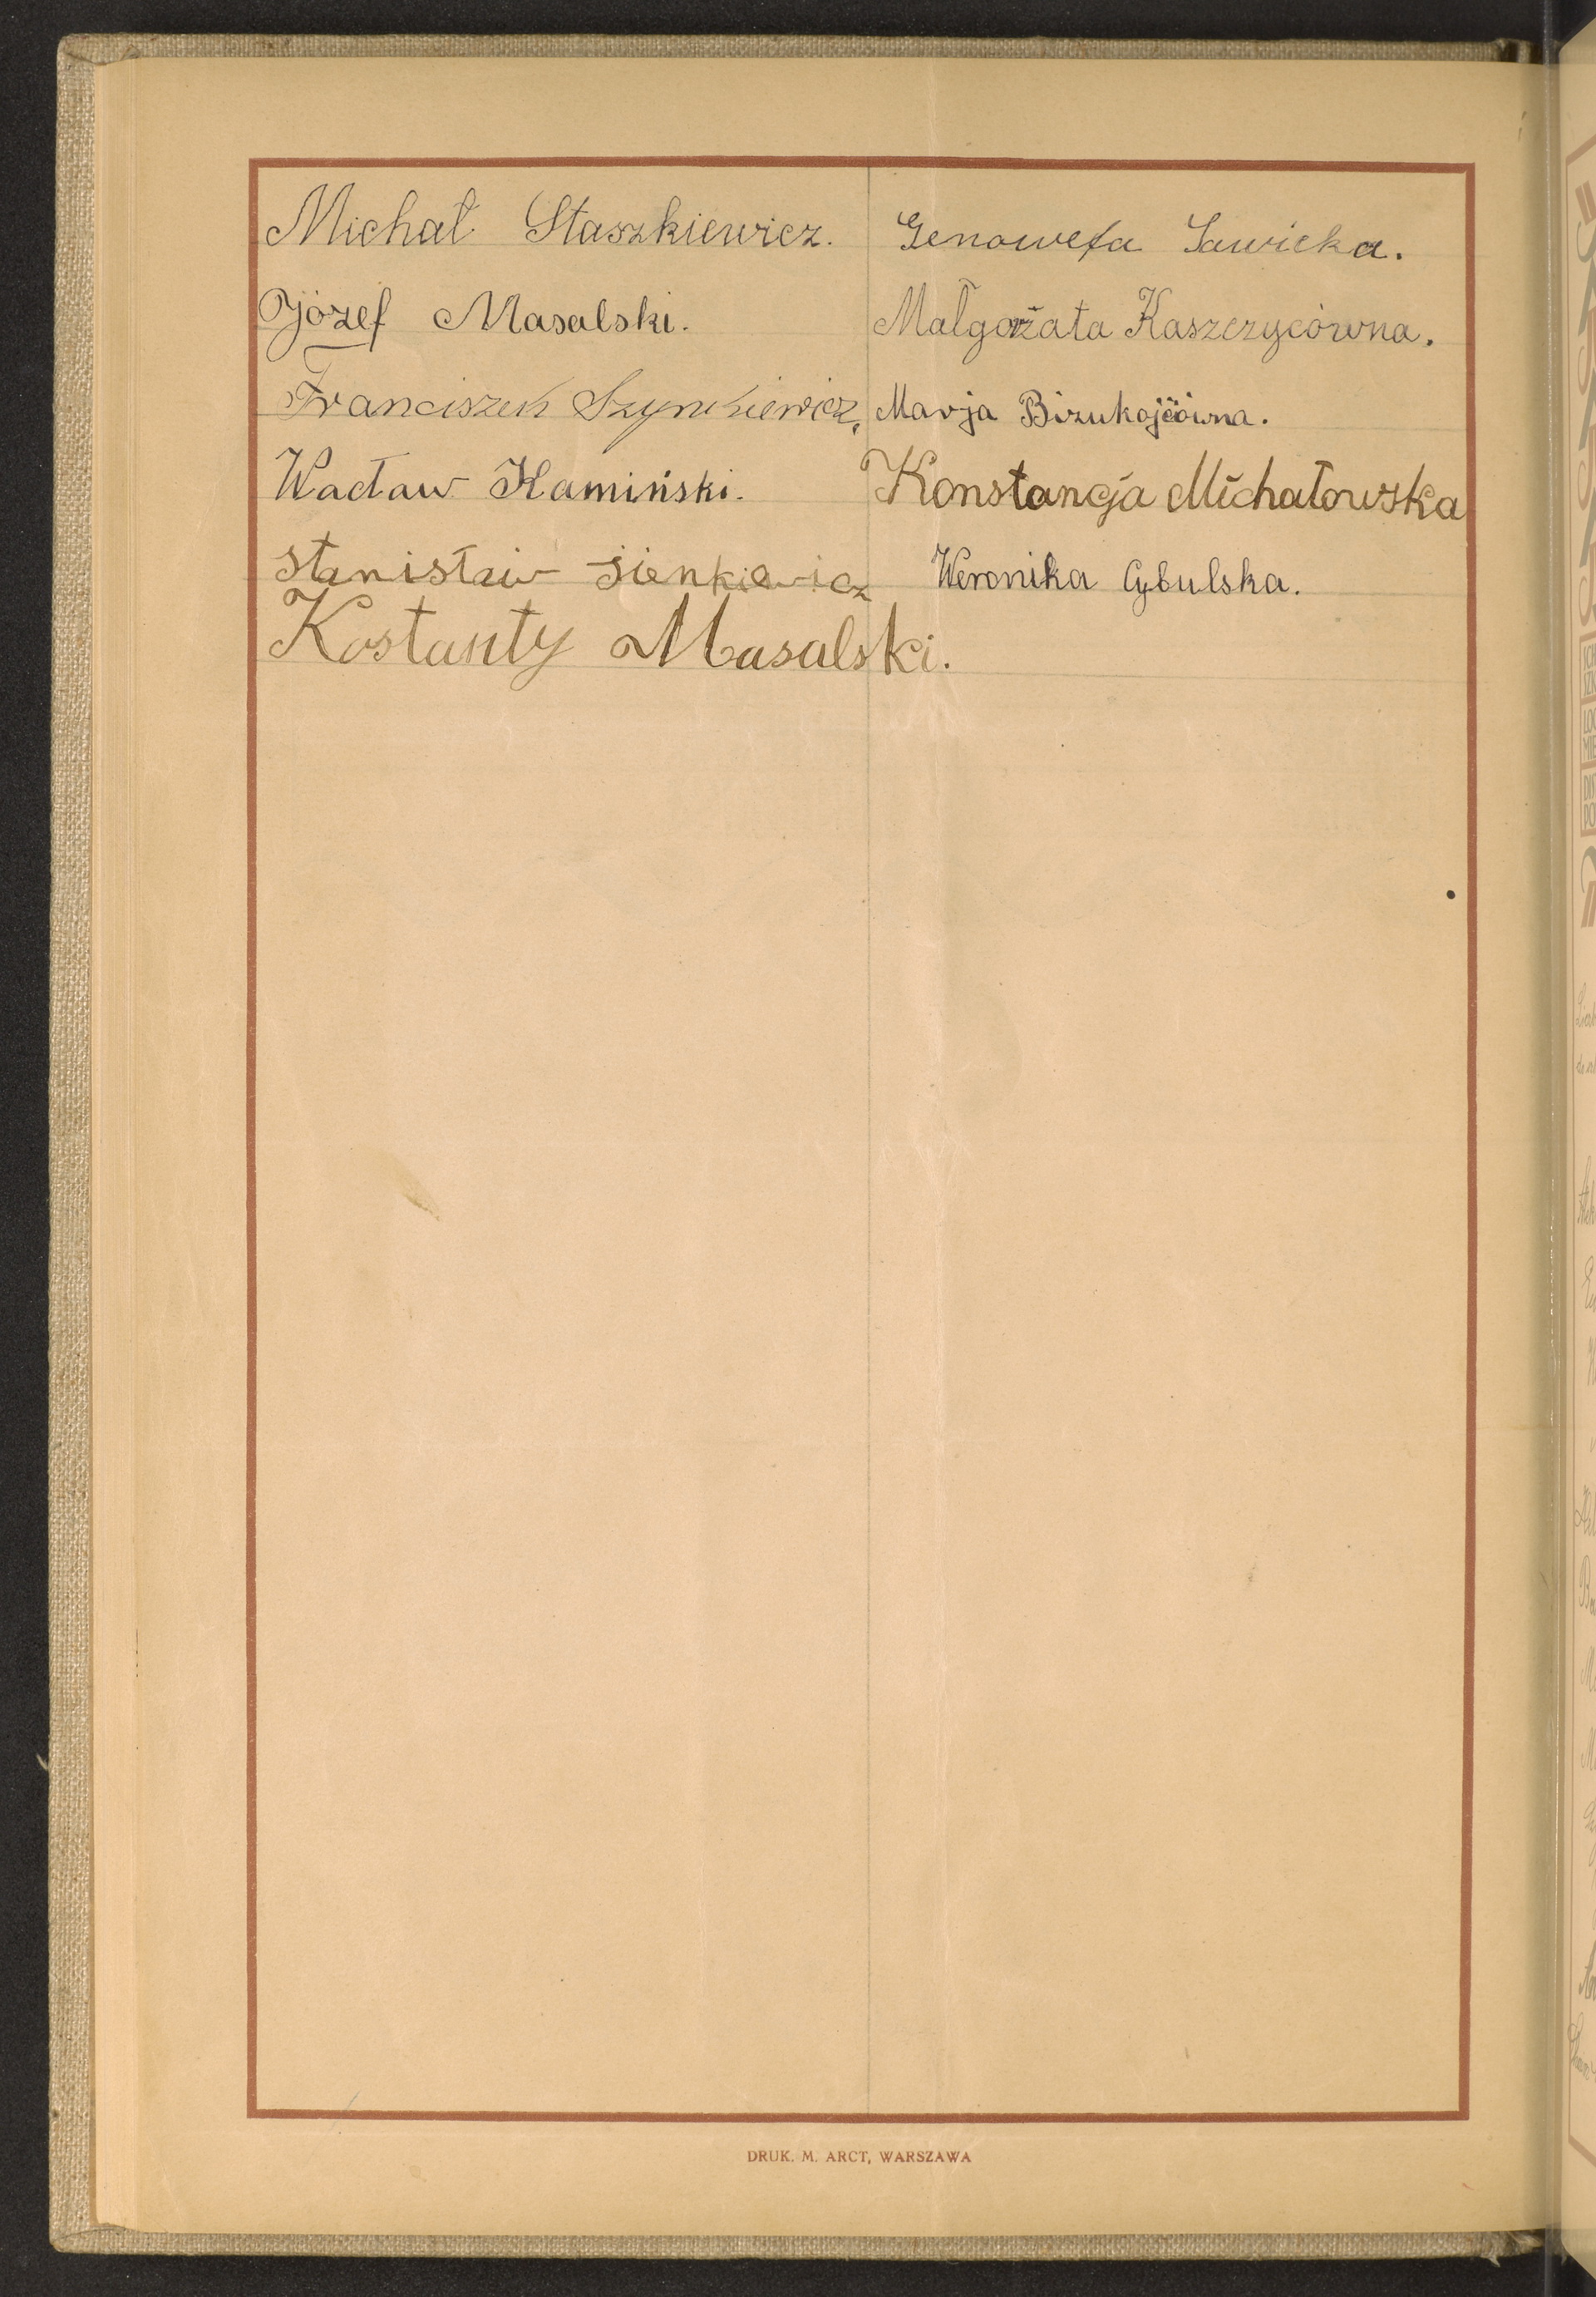 Michał Staszkiewicz.
Józef Masalski.
Franciszek Szynkiewicz.
Wacław Kamiński.
Stanisław Sienkiewicz
Kostanty Masalski.
Genowefa Sawicka.
Małgorzata Kaszczycówna.
Marja
Konstancja Michałowska
Weronika Cybulska.
DRUK. M. ARCT, WARSZAWA